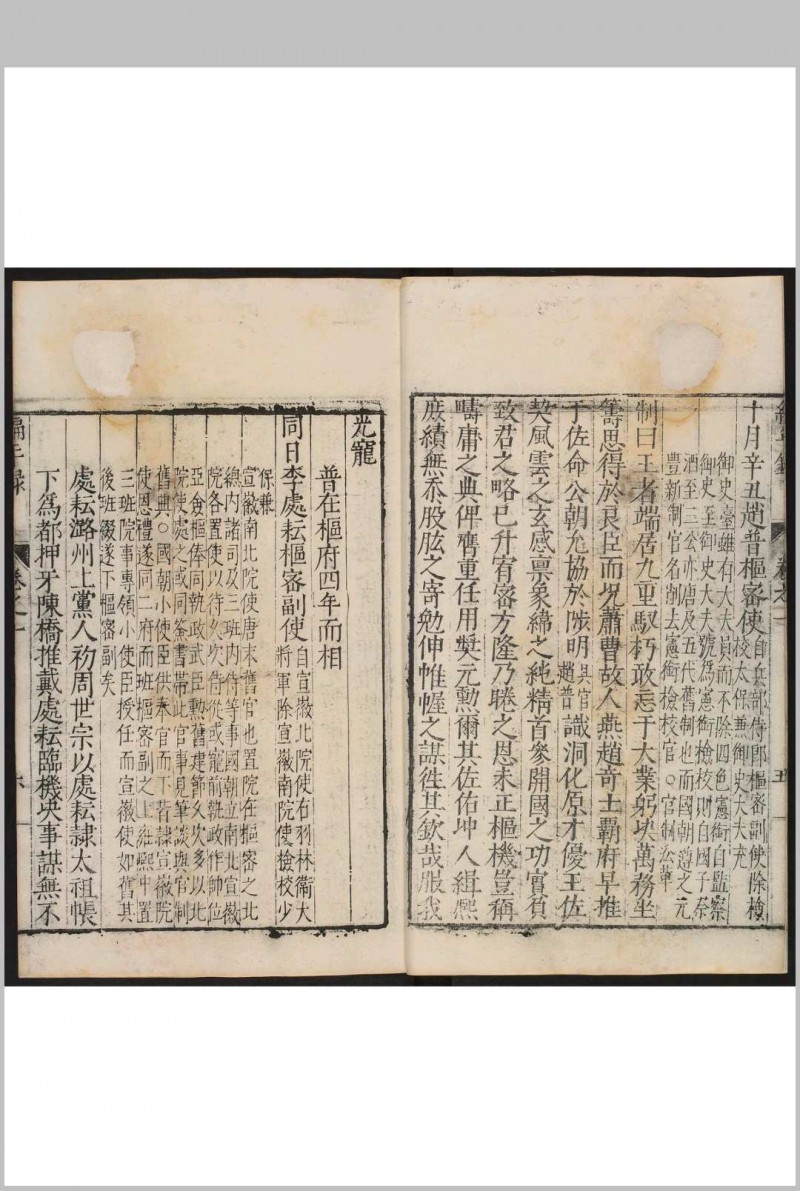 十月辛丑趙普樞密使自兵部侍郎樞密副使除檢
校太保兼御史大夫充
御史臺雖有大夫員而不除四色憲銜自監察
御史至御史大夫號爲憲銜檢校則自國子祭
酒至三公亦唐及五代舊制也而國朝遵之元
豐新制官名削去憲銜檢校官〇官制沿革
制曰王者端居九重馭朽敢忘于大業躬決萬務坐
籌思得於良臣而況蕭曹故人燕趙奇士霸府早推
于佐命公朝允協於陟明具官趙普識洞化原才優王佐
契風雲之玄感稟象緯之純精首參開國之功實負
致君之略已升宥密方隆乃睠之恩未正樞機豈稱
疇庸之典俾膺重任用奬元勲爾其佐佑坤人緝熙
庶績無忝股肱之寄勉伸帷幄之謀徃其欽哉服我
光寵
普在樞府四年而相
同日李處耘樞密副使自宣徽北院使右羽林衛大
將軍除宣徽南院使檢校少
保兼
宣徽南北院使唐末舊官也置院在樞密之北
總内諸司及三班内侍等事國朝立南北宣徽
院各置使以待久次侍從或寵前執政作帥位
亞僉樞俸同執政武臣勲舊建節久次多以北
院使處之或同簽書帶此官事見筆談與官制
舊典〇國朝小使臣供奉官而下皆隸宣徽院
使恩禮遂同二府而班樞密副之上雍熙中置
三班院事專領小使臣授任而宣徽使如舊其
後班綴遂下樞密副矣
處耘潞州上黨人初周世宗以處耘隸太祖帳
下爲都押牙陳橋推戴處耘臨機決事謀無不
編年録
卷之一
五
六